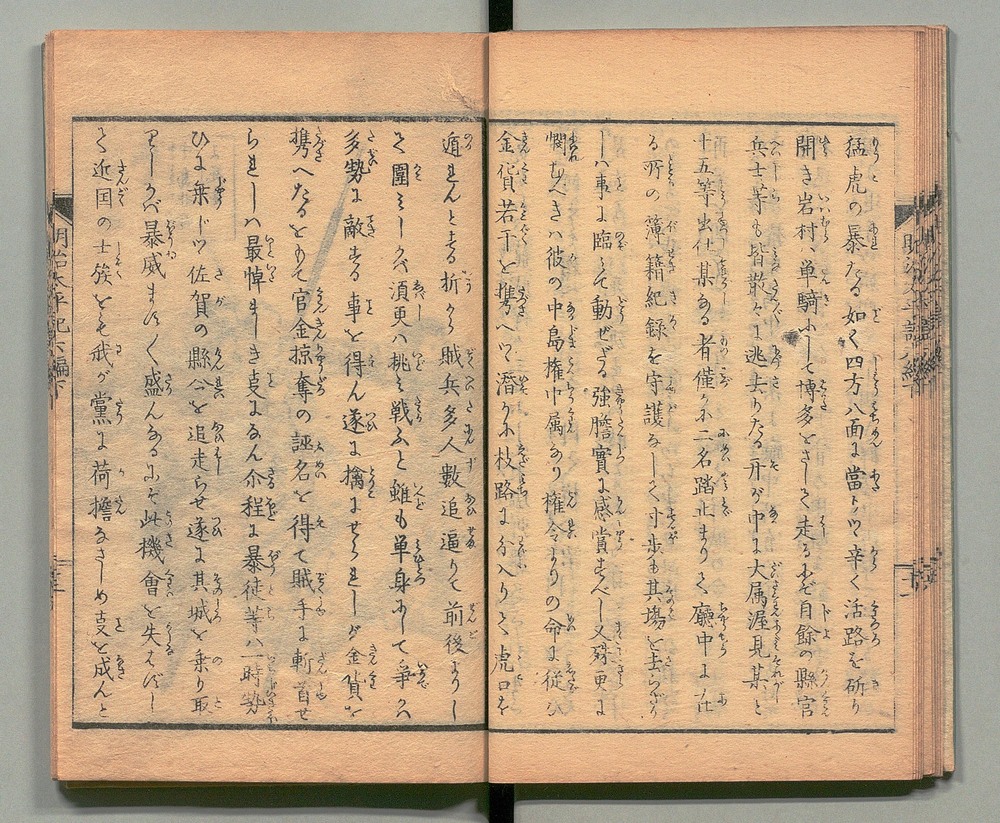 猛虎の暴たる如く四方八面に當りつ辛く活路を斫り
開き岩村ハ単騎にして博多をさして走るにぞ自餘の縣官
兵士等も皆散々に逃去りたる丹が中に大属渥見某と
十五等出仕某なる者僅かに二名踏止まりて廳中に在
る所の簿籍紀録を守護なして寸歩も其場を去らざり
しハ事に臨て動ぜざる強膽實に感賞すべし又殊更に
憫むべきハ彼の中島権中属なり権令よりの命に従ひ
金貨若干を携へつ潜かに枝路に分入りて虎口を
遁れんとする折から賊兵多人數追逼りて前後より
て圍みしかバ須更ハ挑み戦ふと雖も単身にして争か
多勢に敵する事を得ん遂に擒にせられしが金貨を
携へたるをもて官金掠奪の誣名を得て賊手に斬首せ
られしハ最悼ましき㕝になん介程に暴徒等ハ一時勢
ひに乗じつ佐賀の縣令を追走らせ遂に其城を乗り取
りしかバ暴威ます〳〵盛んなるにぞ此機會を失はじ
と近国の士族をも我が黨に荷擔なさしめ㕝を成んと
明治太平記六編下